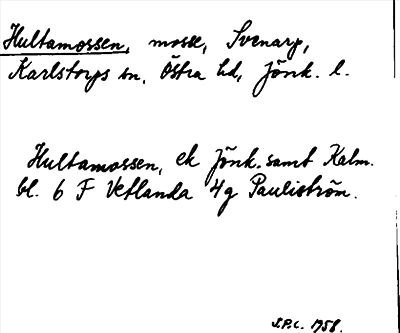 Hultamossen, mosse, Svenarp,
Karlstorps sn, Östra hd, Jönk. l.
Hultamossen, ek Jönk. samt Kalm.
bl. 6 F Vetlanda 4g Pauliström.
S.P.C. 1958.